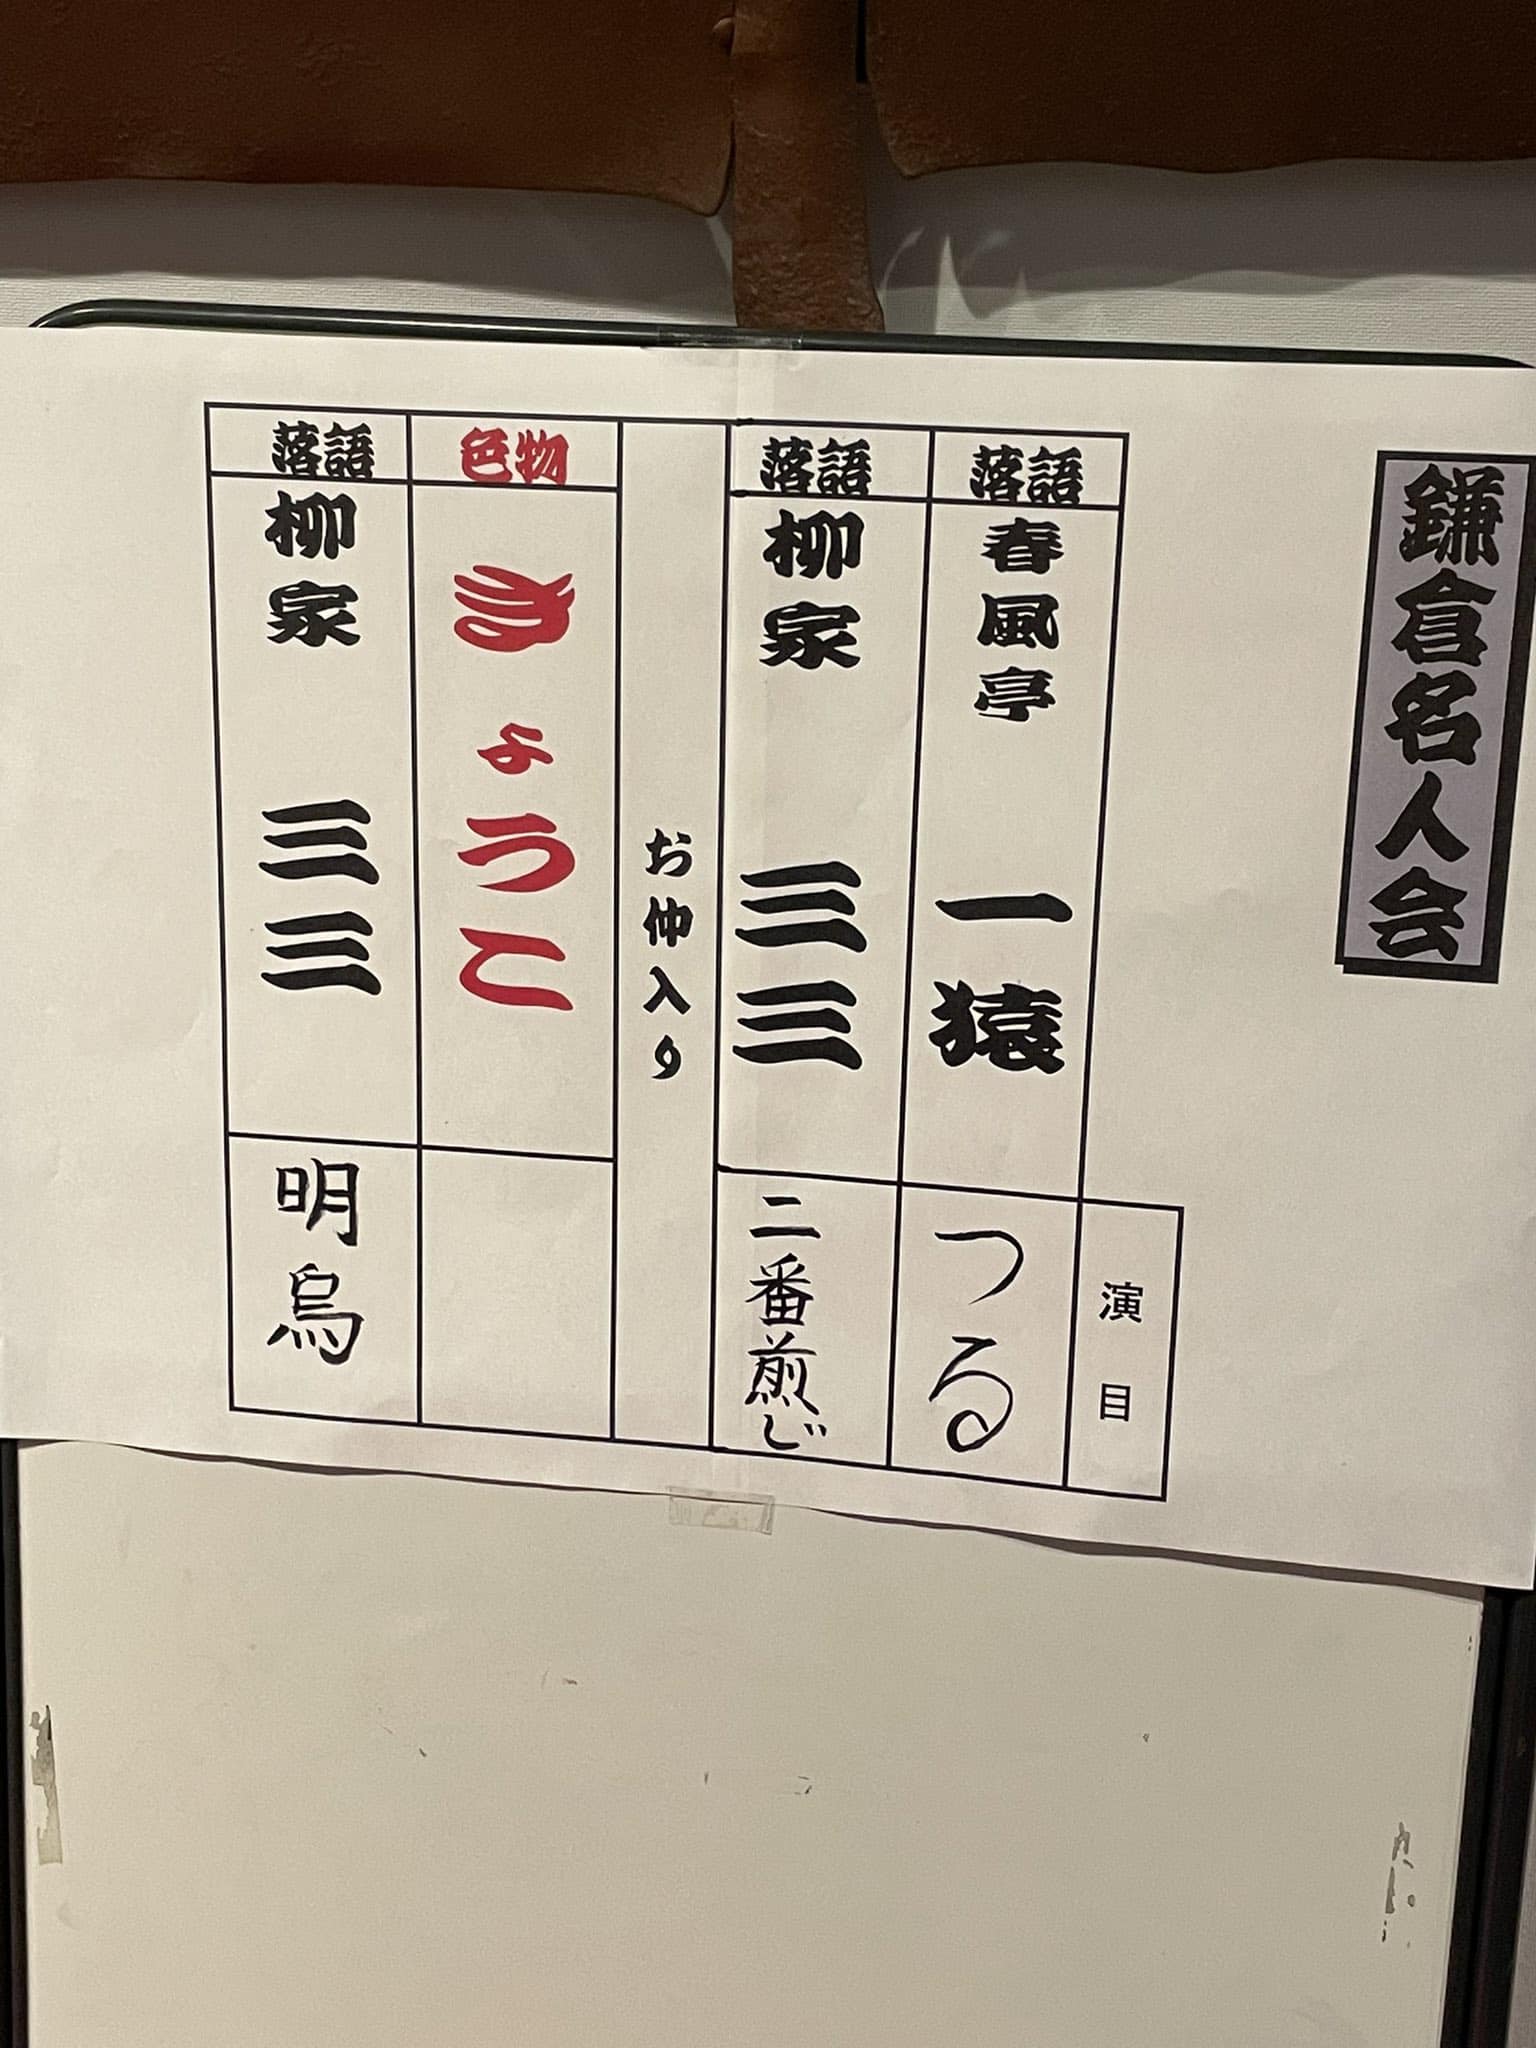 鎌倉名人会
演目
落語
春風亭 一猿
つる
落語
柳家 三三
二番煎じ
お仲入り
色物
きょうこ
落語
柳家 三三
明烏